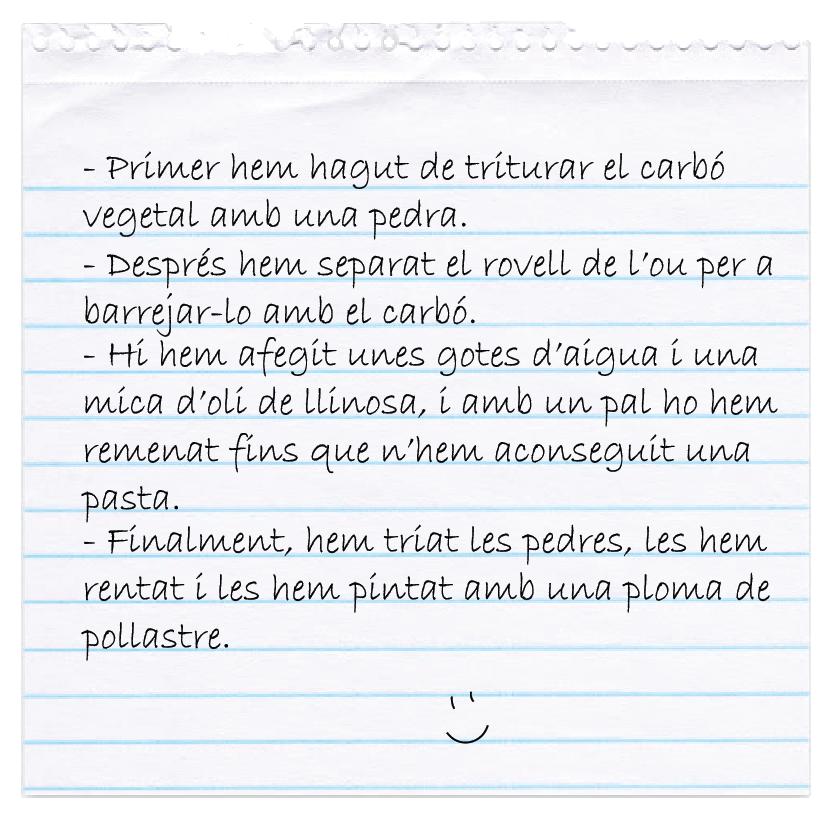 - Primer hem hagut de triturar el carbó
vegetal amb una pedra.
- Després hem separat el rovell de l'ou per a
barrejar-lo amb el carbó.
- Hi hem afegit unes gotes d'aigua i una
mica d'oli de llinosa, i amb un pal ho hem
remenat fins que n'hem aconseguit una
pasta.
- Finalment, hem triat les pedres, les hem
rentat i les hem pintat amb una ploma de
pollastre.